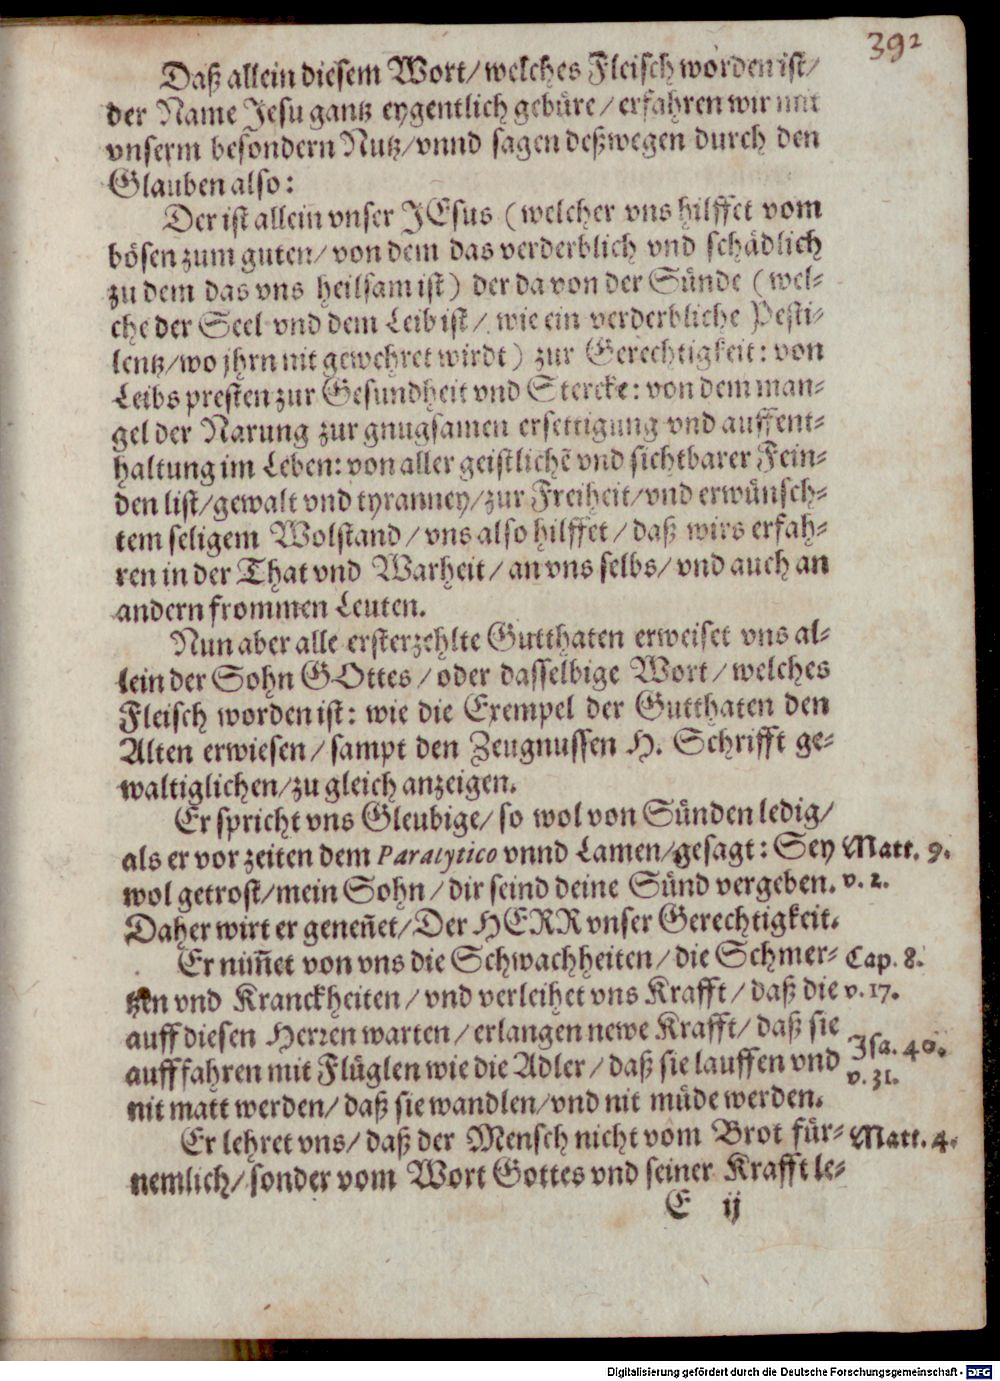 392
Daß allein diesem Wort/ welches Fleisch worden ist/
der Name Jesu gantz eygentlich gebüre/ erfahren wir mit
vnserm besondern Nutz/ vnnd sagen deßwegen durch den
Glauben also:
Der ist allein vnser JEsus (welcher vns hilffet vom
bösen zum guten/ von dem das verderblich vnd schädlich
zu dem das vns heilsam ist) der da von der Sünde (wel-
che der Seel vnd dem Leib ist/ wie ein verderbliche Pesti-
lentz/ wo jhrn nit gewehret wirdt) zur Gerechtigkeit: von
Leibs presten zur Gesundheit vnd Stercke: von dem man-
gel der Narung zur gnugsamen ersettigung vnd auffent-
haltung im Leben: von aller geistlichẽ vnd sichtbarer Fein-
den list/ gewalt vnd tyranney/ zur Freiheit/ vnd erwünsch-
tem seligem Wolstand/ vns also hilffet/ daß wirs erfah-
ren in der That vnd Warheit/ an vns selbs/ vnd auch an
andern frommen Leuten.
Nun aber alle ersterzehlte Gutthaten erweiset vns al-
lein der Sohn GOttes/ oder dasselbige Wort/ welches
Fleisch worden ist: wie die Exempel der Gutthaten den
Alten erwiesen/ sampt den Zeugnussen H. Schrifft ge-
waltiglichen/ zu gleich anzeigen.
Er spricht vns Gleubige/ so wol von Sünden ledig/
als er vor zeiten dem Paralytico vnnd Lamen/ gesagt: Sey Matt. 9.
wol getrost/ mein Sohn/ dir seind deine Sünd vergeben. v. 2.
Daher wirt er geneñet/ Der HERR vnser Gerechtigkeit.
Er nim̃et von vns die Schwachheiten/ die Schmer- Cap. 8.
tzen vnd Kranckheiten/ vnd verleihet vns Krafft/ daß die v. 17.
auff diesen Herren warten/ erlangen newe Krafft/ daß sie
auffahren mit Flüglen wie die Adler/ daß sie lauffen vnd Isa. 40.
v. 31.
nit matt werden/ daß sie wandlen/ vnd nit müde werden.
Er lehret vns/ daß der Mensch nicht vom Brot für- Matt. 4.
nemlich/ sonder vom Wort Gottes vnd seiner Krafft le-
E ij
Digitalisierung gefördert durch die Deutsche Forschungsgemeinschaft - DFG